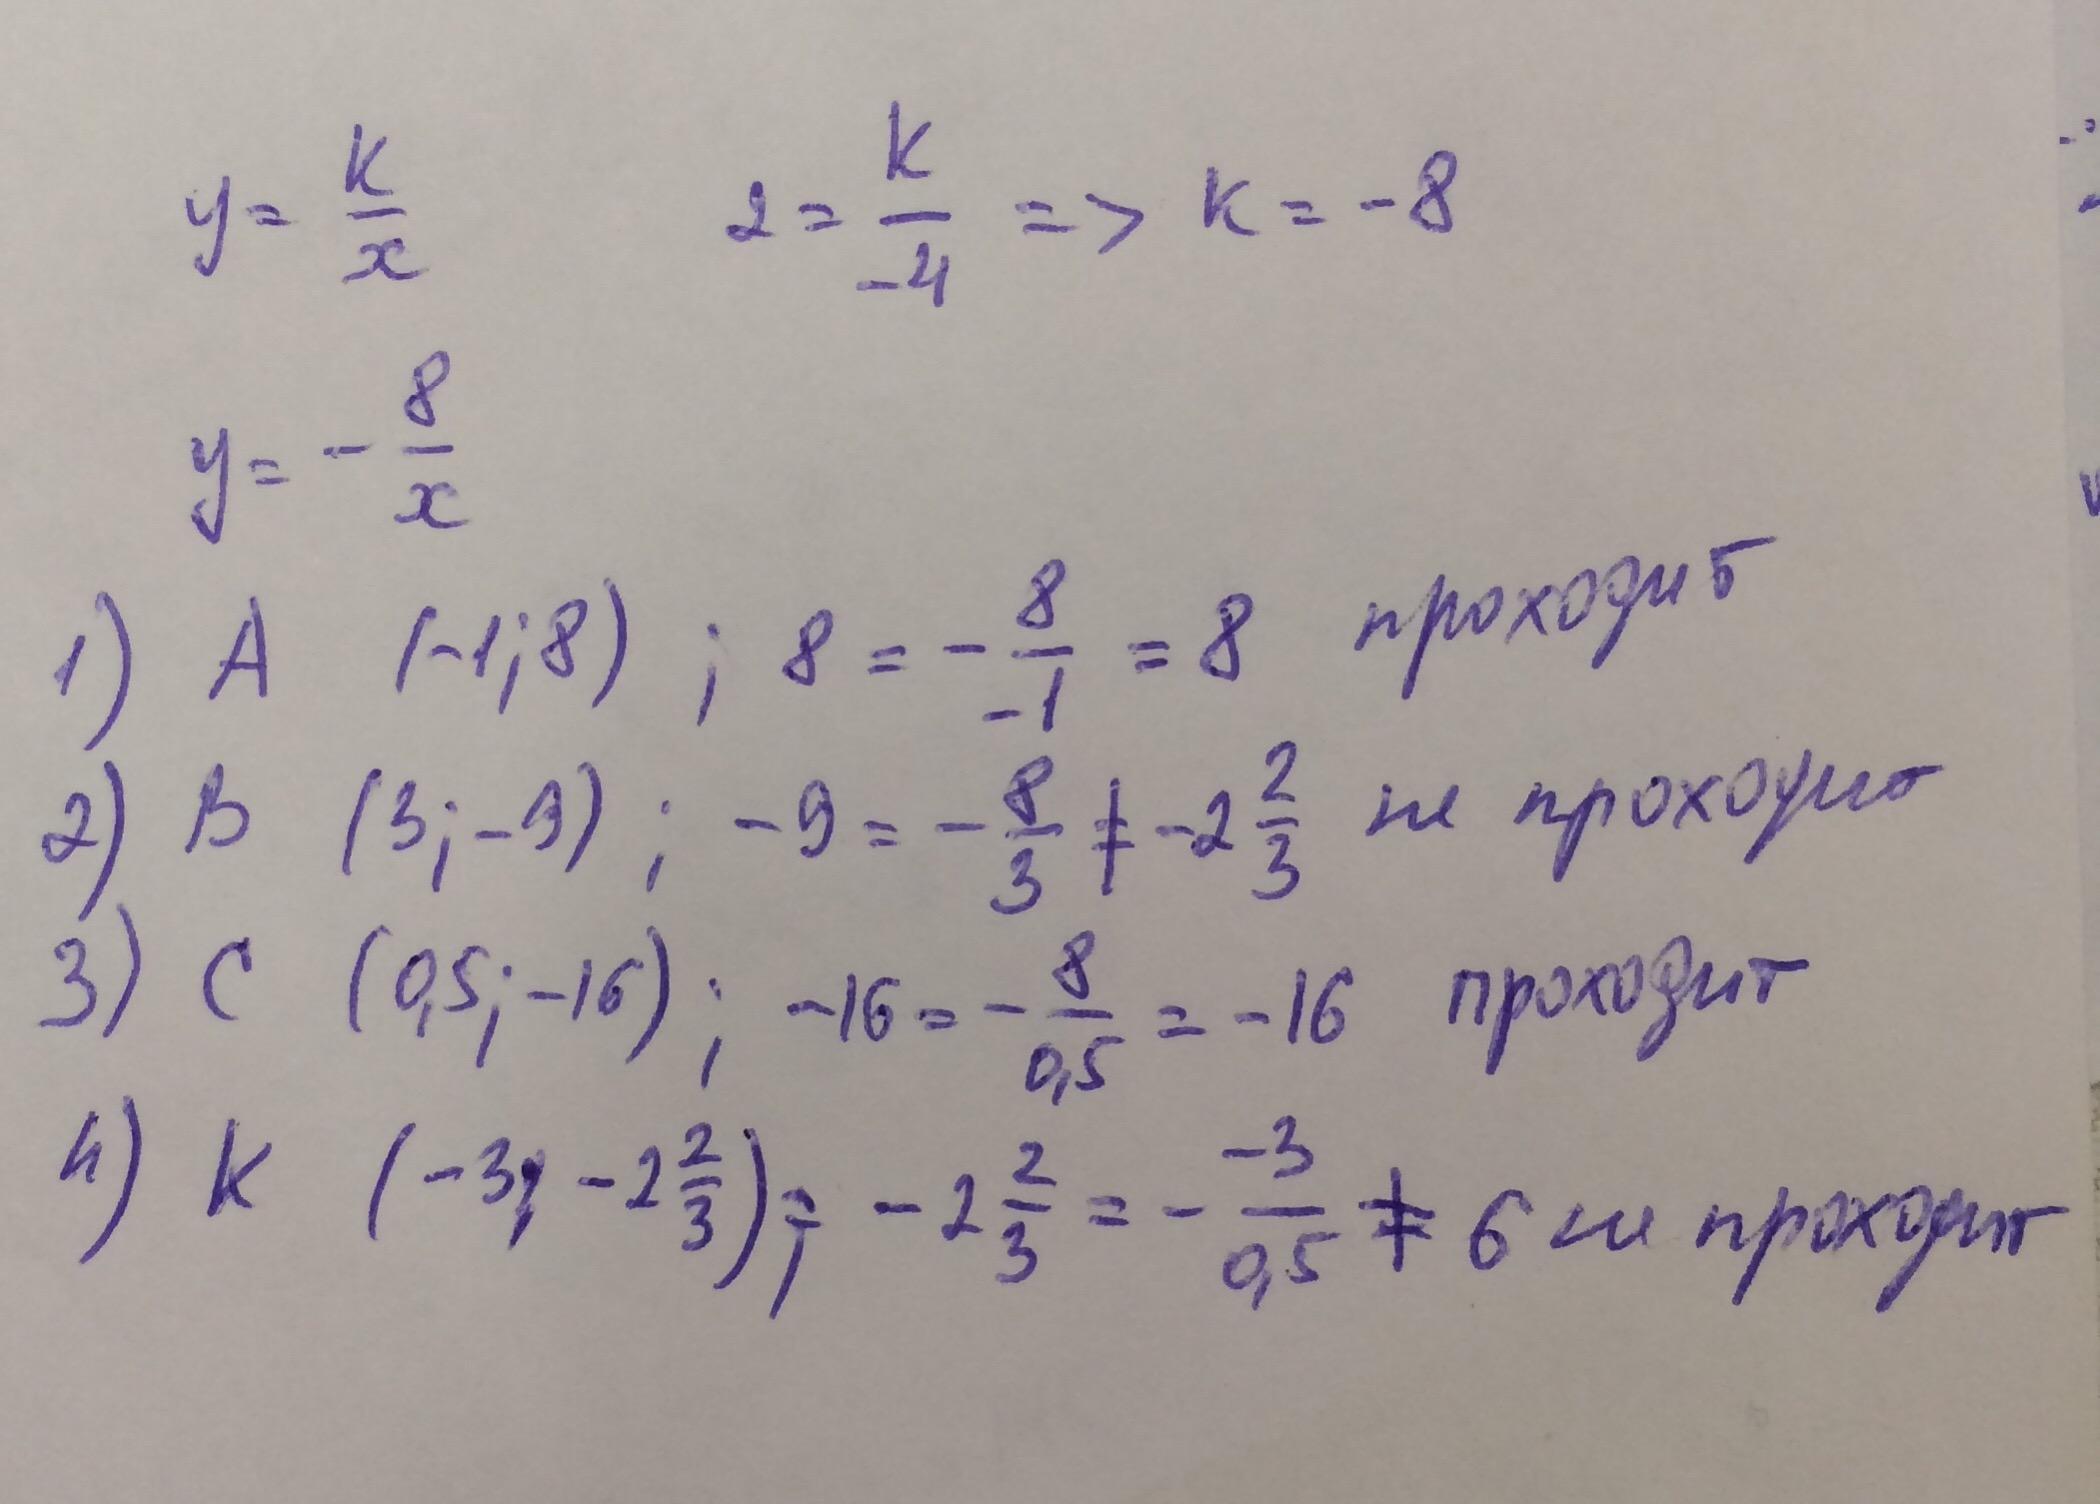 y = k/x    2 = k/-4 => k = -8
y = - 8/x
1) A (-1; 8) ; 8 = - 8/-1 = 8 проходит
2) B (3; -9) ; -9 = - 8/3 ≠ -2 2/3 не проходит
3) C (0,5; -16) ; -16 = - 8/0,5 = -16 проходит
4) K (-3; -2 2/3) ; -2 2/3 = - -3/0,5 ≠ 6 не проходит